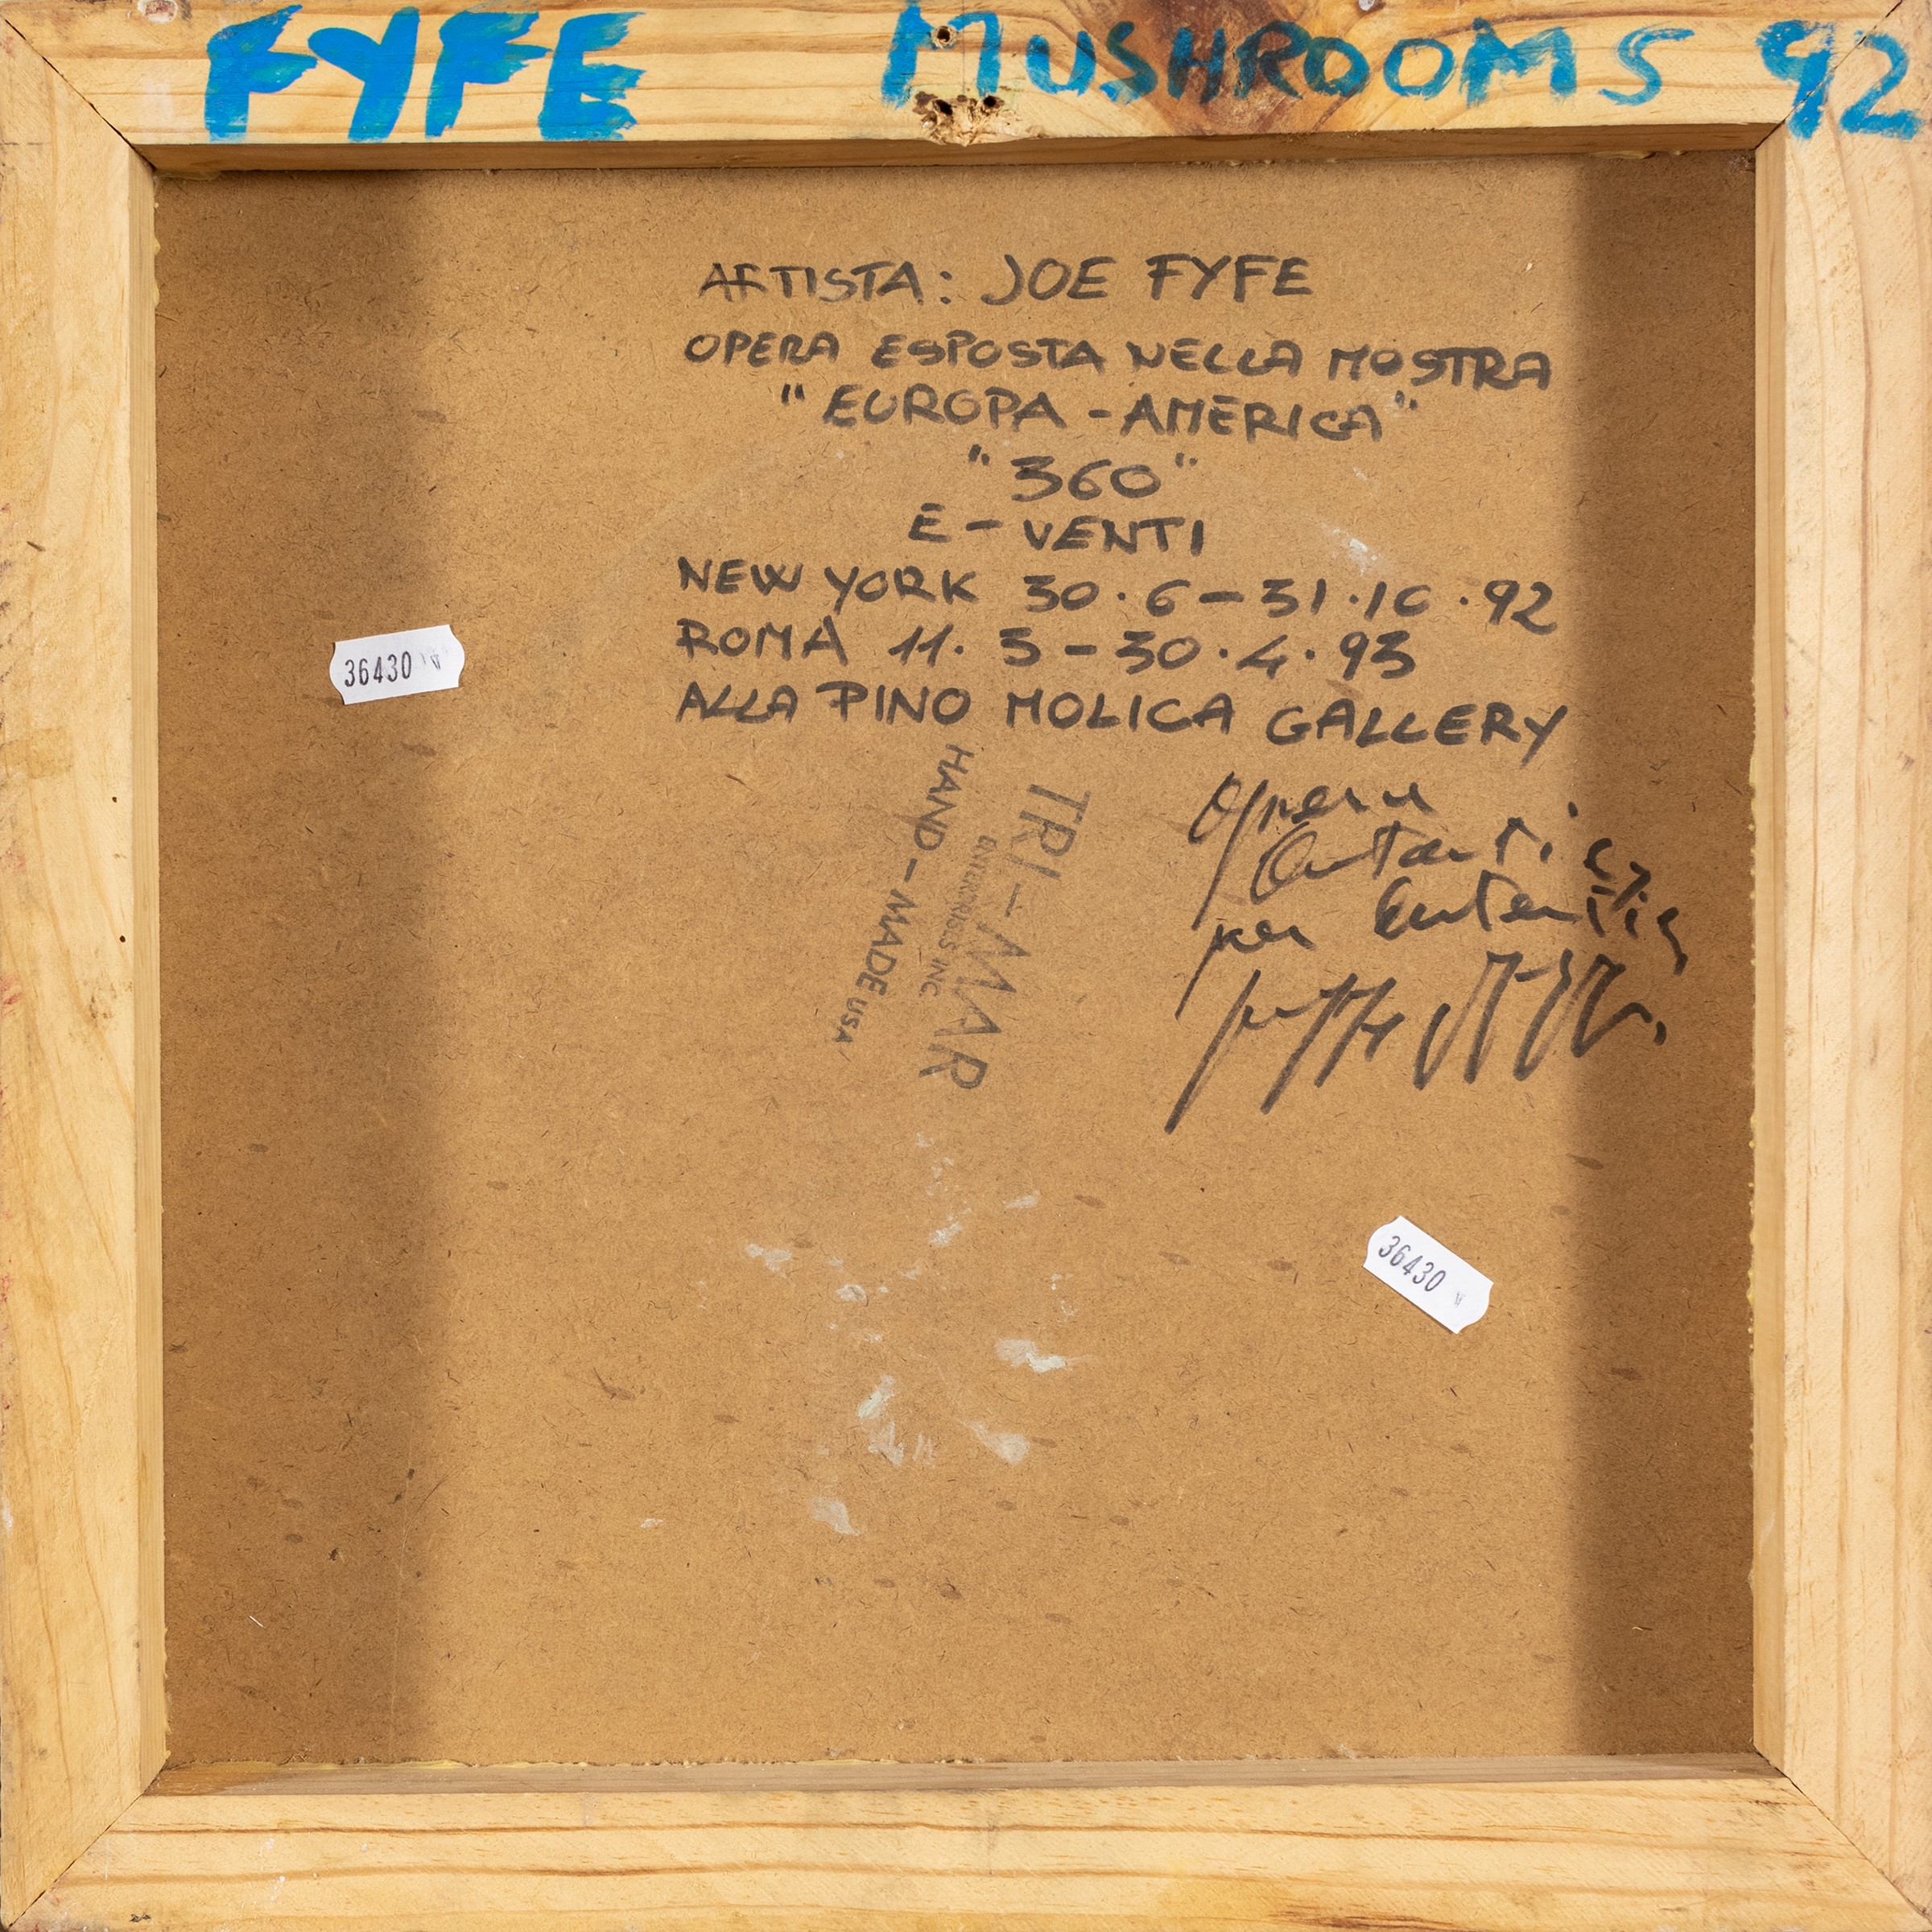 FYFE MUSHROOMS 92
ARTISTA: JOE FYFE
OPERA ESPOSTA NELLA MOSTRA
"EUROPA - AMERICA"
"360"
E - VENTI
NEW YORK 30.6 - 31.10.92
ROMA 11.3 - 30.4.93
ALLA PINO MOLICA GALLERY
36430
TRI-MAR
ENTERPRISES INC.
HAND-MADE USA
Opera
per
36430